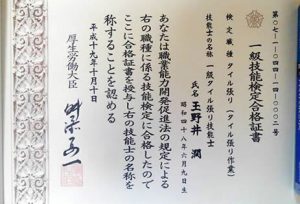 第〇七-一-〇四四-一四-〇〇〇二号
一級技能検定合格証書
検定職種 タイル張り(タイル張り作業)
技能士の名称 一級タイル張り技能士
氏名 玉野井 潤
昭和四十八年六月九日生
あなたは職業能力開発促進法の規定による
右の職種に係る技能検定に合格したので
ここに合格証書を授与し右の技能士の名称を
称することを認める
平成十九年十月十日
厚生労働大臣